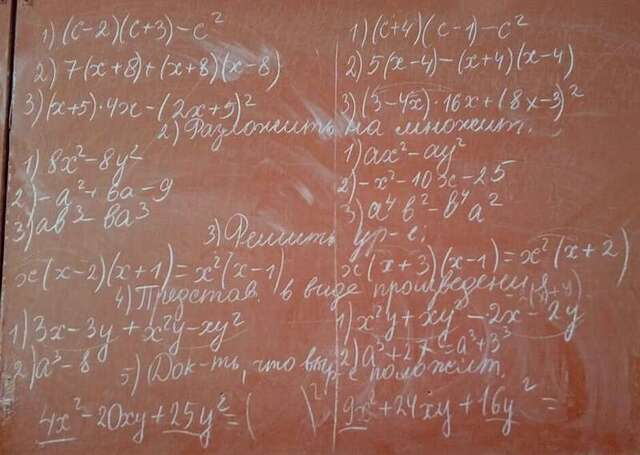 1) (c-2)(c+3)-c²
2) 7(x+8)+(x+8)(x-8)
3) (x+5)·4x-(2x+5)²
1) (c+4)(c-1)-c²
2) 5(x-4)-(x+4)(x-4)
3) (3-4x)·16x+(8x-3)²
2) Разложить на множит.
1) 8x²-8y²
2) -a²+6a-9
3) ab³-ba³
1) ax²-ay²
2) -x²-10x-25
3) a⁴b²-b⁴a²
3) Решить ур-е:
x(x-2)(x+1)=x²(x-1)
x(x+3)(x-1)=x²(x+2)
4) Представ. в виде произведения
1) 3x-3y+x²y-xy²
2) a³-8
1) x²y+xy²-2x-2y
2) a³+27=a³+3³
5) Док-ть, что выр-е положит.
4x²-20xy+25y²=( )²
9x²+24xy+16y²=